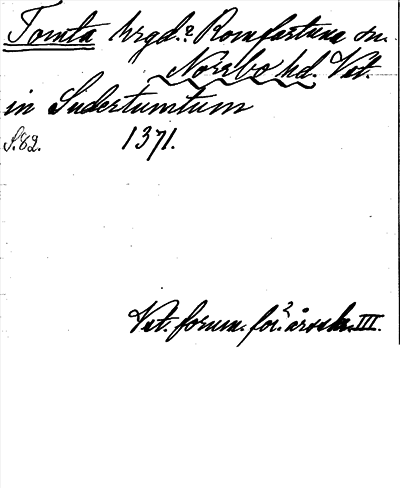 Tomta hrgd.? Romfartuna sn.
Norrbo hd. Vst.
in Sudertumtum
S. 82. 1371.
Vst. fornm. för:s årsskr. III.